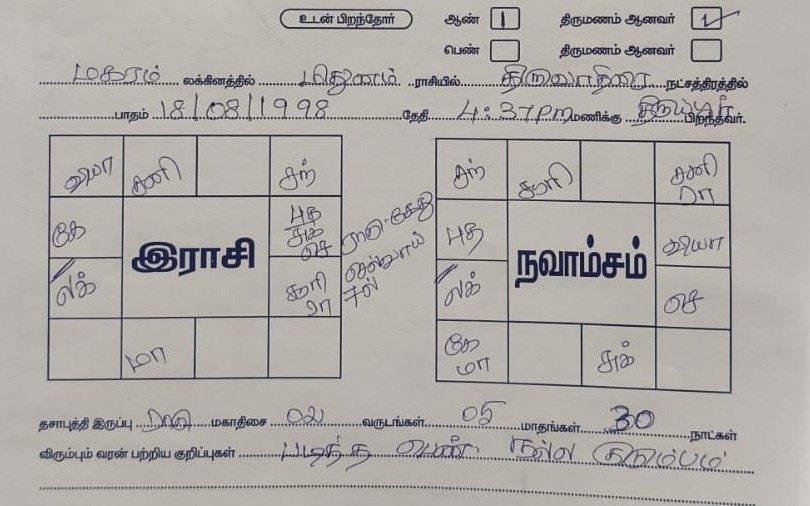 உடன் பிறந்தோர் ஆண் 1 திருமணம் ஆனவர் ✓
பெண் திருமணம் ஆனவர்
மகரம் லக்கினத்தில் மிதுனம் ராசியில் திருவாதிரை நட்சத்திரத்தில்
பாதம் 18/08/1998 தேதி 4:37pm மணிக்கு திருப்பூர் பிறந்தவர்.
வியா சனி சந்
கே
புத
சுக்
செ
லக்
சூரி
ரா
மா
இராசி
ராகு-கேது
செவ்வாய்
7ல்
சந் சூரி சனி
ரா
புத வியா
லக் செ
கே
மா
சுக்
நவாம்சம்
தசாபுத்தி இருப்பு ராகு மகாதிசை 02 வருடங்கள் 05 மாதங்கள் 30 நாட்கள்
விரும்பும் வரன் பற்றிய குறிப்புகள் படித்த பெண் நல்ல குடும்பம்